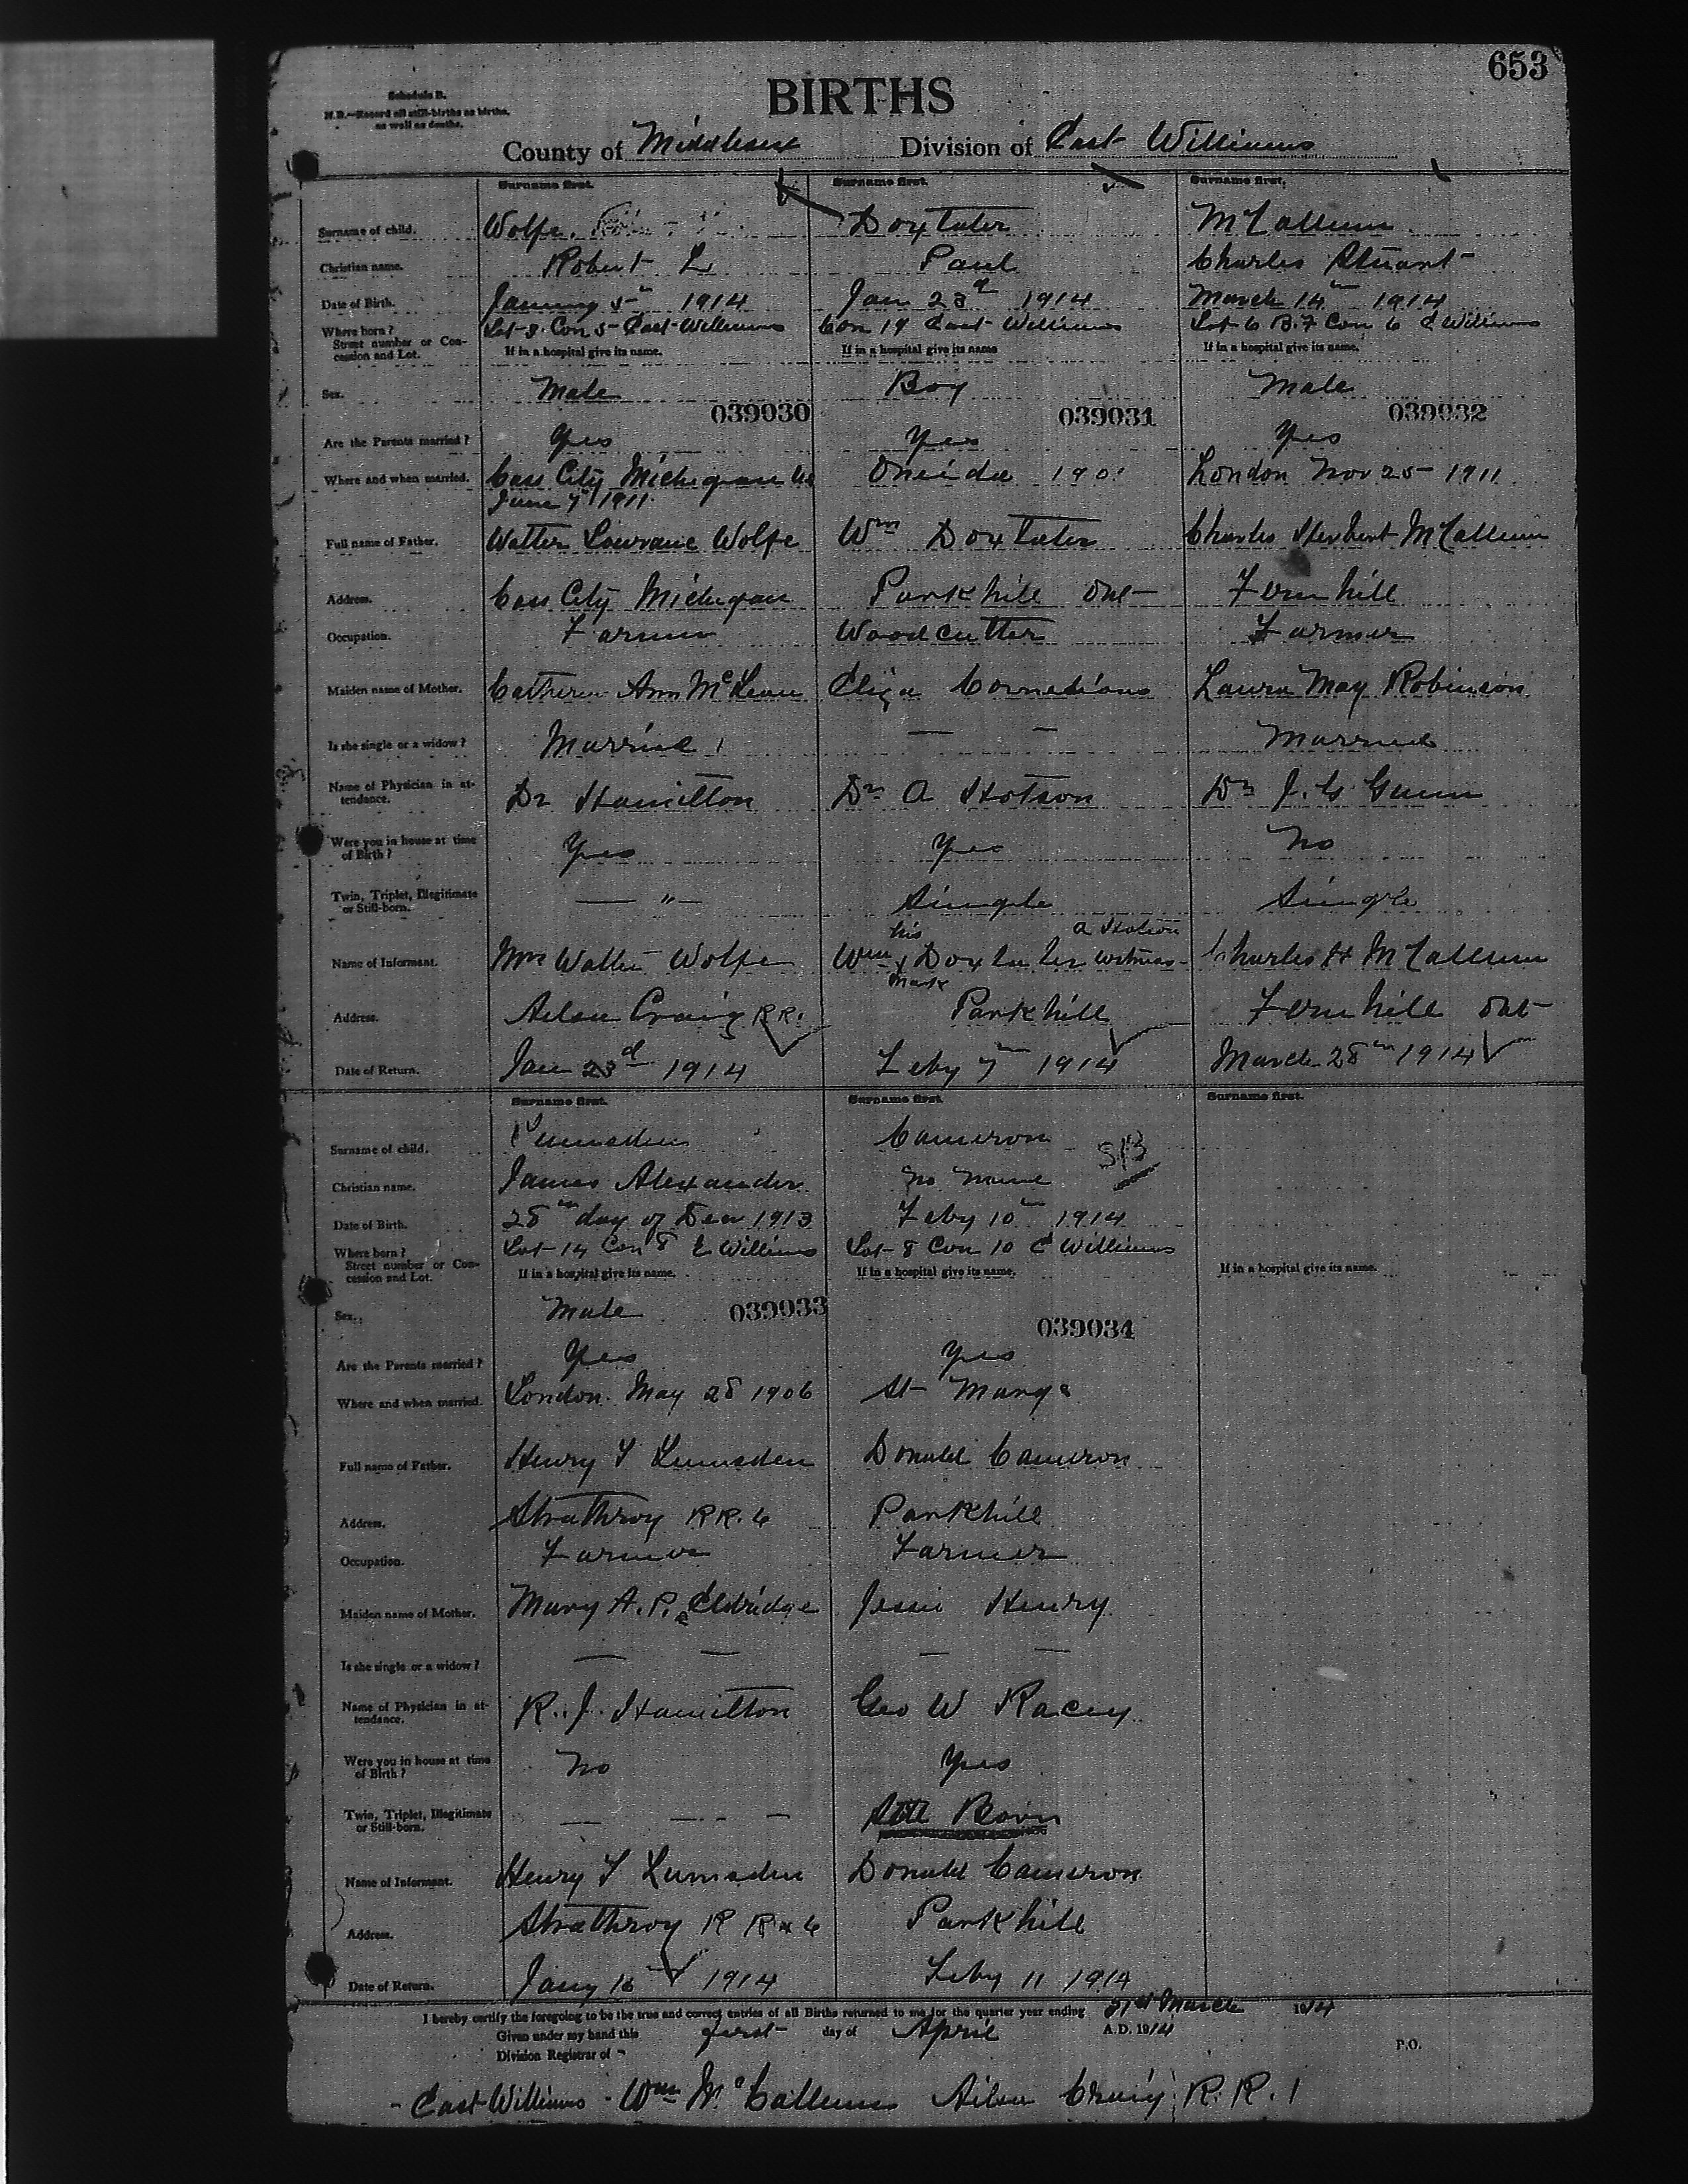 653
Schedule B.
N.B.—Record all still-births as births, as well as deaths.
BIRTHS
County of Middlesex Division of East Williams
Surname first. Surname first. Surname first.
Surname of child. Wolfe. Doxtater McCallum
Christian name. Robert L Paul Charles Stuart
Date of Birth. January 5th 1914 Jan 23d 1914 March 14th 1914
Where born? Street number or Concession and Lot. Lot 8 Con 5 East Williams Con 19 East Williams Lot 6 B.7 Con 6 E Williams
If in a hospital give its name. If in a hospital give its name If in a hospital give its name.
Sex. Male Boy Male
039030 039031 039032
Are the Parents married? Yes Yes Yes
Where and when married. Cass City Michigan US Oneida 190 London Nov 25 1911
June 7 1911
Full name of Father. Walter Lawrance Wolfe Wm Doxtater Charles Herbert McCallum
Address. Cass City Michigan Parkhill Ont Fernhill
Occupation. Farmer Woodcutter Farmer
Maiden name of Mother. Catherine Ann McLean Eliza Cornelious Laura May Robinson
Is she single or a widow? Married — — Married
Name of Physician in attendance. Dr Hamilton Dr A Hotson Dr J. G Gunn
Were you in house at time of Birth? Yes Yes No
Twin, Triplet, Illegitimate or Still-born. — " — Single Single
his A Hotson
Name of Informant. Mrs Walter Wolfe Wm x Doxtater witness Charles H McCallum
mark
Address. Ailsa Craig RR1 Parkhill Fernhill Ont
Date of Return. Jan 23d 1914 Feby 7th 1914 March 28th 1914
Surname first. Surname first. Surname first.
Surname of child. Lumsden Cameron
S/B
Christian name. James Alexander No Name
Date of Birth. 28th day of Dec 1913 Feby 10th 1914
Where born? Street number or Concession and Lot. Lot 14 Con 8 E Williams Lot 8 Con 10 E Williams
If in a hospital give its name. If in a hospital give its name. If in a hospital give its name.
Sex. Male
039033 039034
Are the Parents married? Yes Yes
Where and when married. London May 28 1906 St Marys
Full name of Father. Henry T Lumsden Donald Cameron
Address. Strathroy RR. 6 Parkhill
Occupation. Farmer Farmer
Maiden name of Mother. Mary A. P. Eldridge Jessie Henry
Is she single or a widow? — — — —
Name of Physician in attendance. R. J. Hamilton Geo W Racey
Were you in house at time of Birth? No Yes
Twin, Triplet, Illegitimate or Still-born. — — - - Still Born
Name of Informant. Henry T Lumsden Donald Cameron
Address. Strathroy R R 6 Parkhill
Date of Return. Jany 16 1914 Feby 11 1914
I hereby certify the foregoing to be the true and correct entries of all Births returned to me for the quarter year ending 31st March 1914
Given under my hand this first day of April A.D. 1914
Division Registrar of P.O.
East Williams Wm McCallum Ailsa Craig R. R. 1